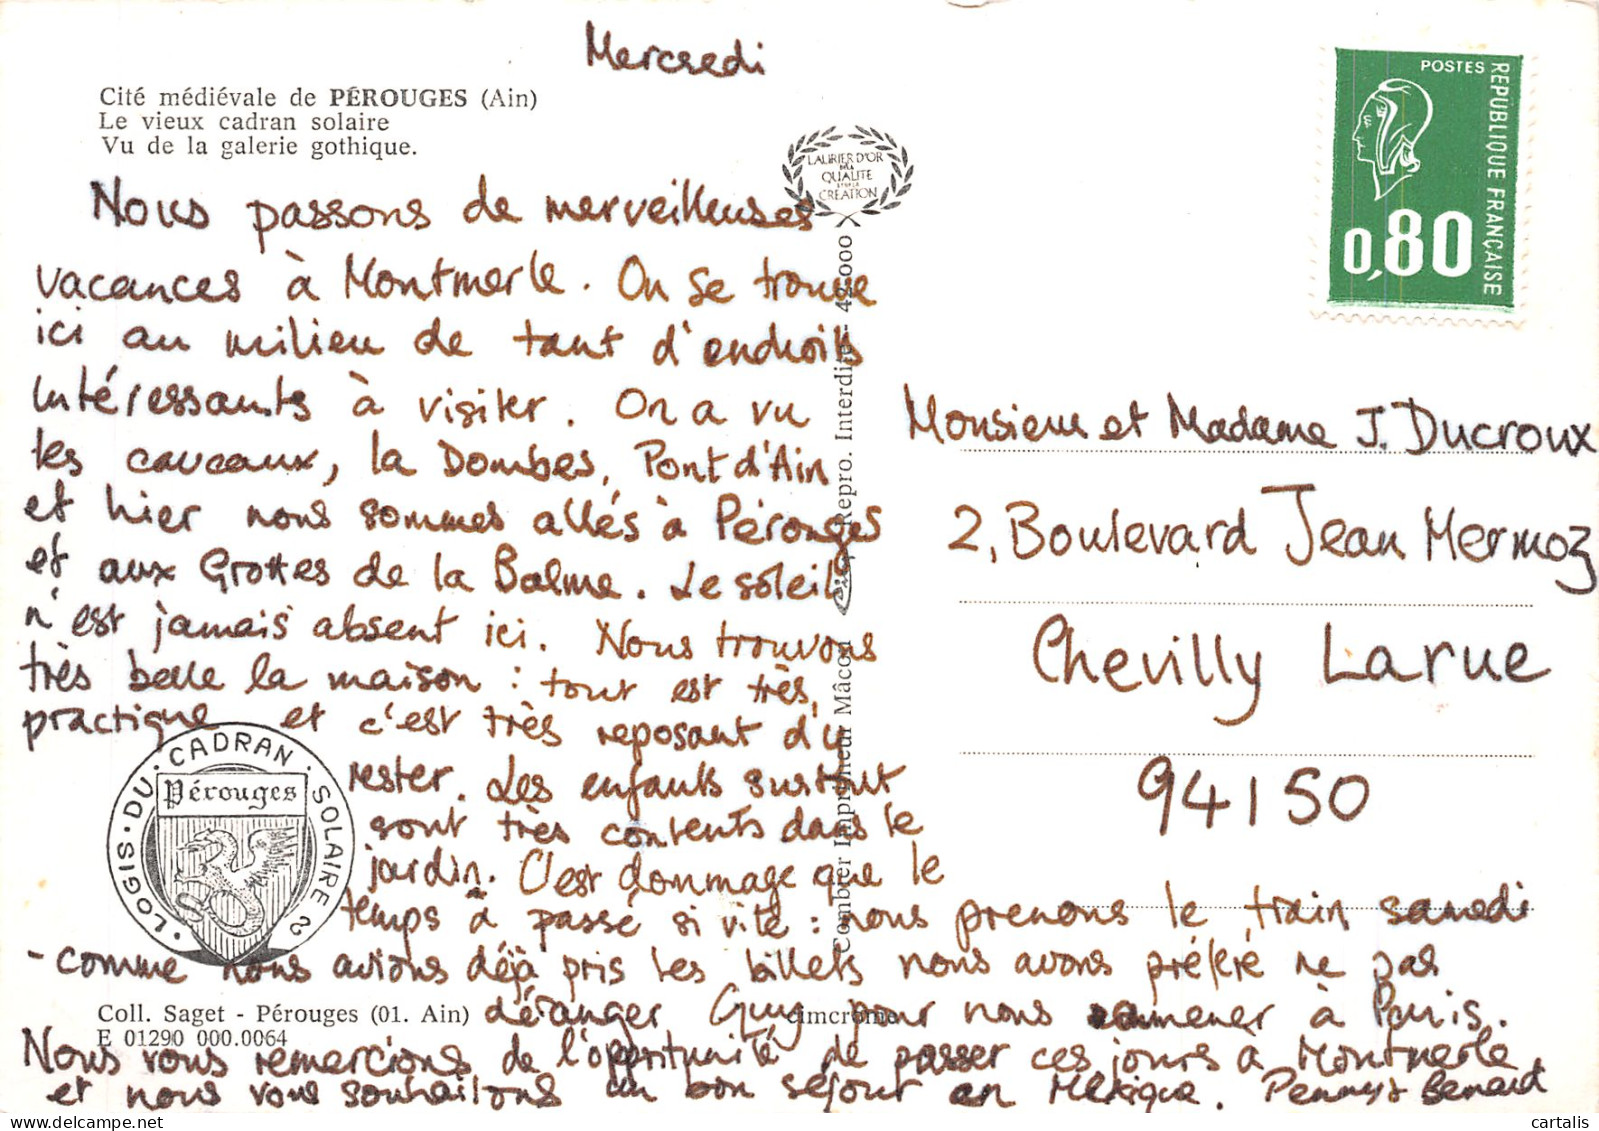 Mercredi
Cité médiévale de PÉROUGES (Ain)
Le vieux cadran solaire
Vu de la galerie gothique.
LAURIER D'OR
DE LA
QUALITE
ET DE LA
CREATION
POSTES
REPUBLIQUE FRANÇAISE
0,80
Nous passons de merveilleuses
vacances à Montmerle. On se trouve
ici au milieu de tant d'endroits
intéressants à visiter. On a vu
les caveaux, la Dombes, Pont d'Ain
et hier nous sommes allés à Pérouges
et aux Grottes de la Balme. Le soleil
n'est jamais absent ici. Nous trouvons
très belle la maison : tout est très,
practique et c'est très reposant d'y
rester. Les enfants surtout
sont très contents dans le
jardin. C'est dommage que le
temps a passé si vite : nous prenons le train samedi
- comme nous avions déjà pris les billets nous avons préféré ne pas
déranger Guy pour nous ramener à Paris.
Nous vous remercions de l'opportunité de passer ces jours à Montmerle
et nous vous souhaitons un bon séjour en Mexique.
Monsieur et Madame J. Ducroux
2, Boulevard Jean Mermoz
Chevilly Larue
94150
Combier Imprimeur Mâcon
Repro. Interdite - 42.000
LOGIS · DU · CADRAN · SOLAIRE
Pérouges
Coll. Saget - Pérouges (01. Ain)
cimcrome
E 01290 000.0064
cartalis
delcampe.net